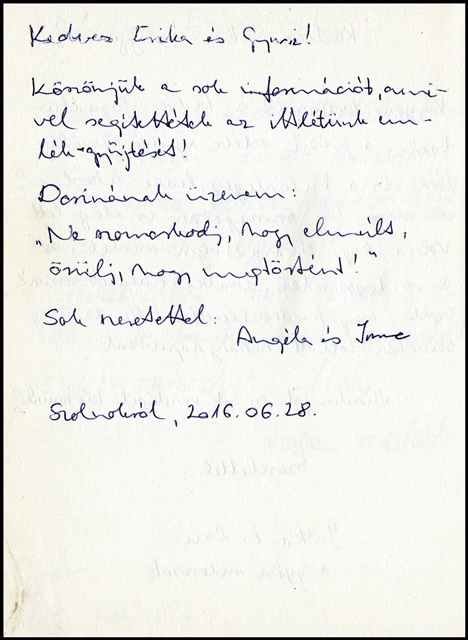 Kedves Erika és Gyuszi!
Köszönjük a sok információt, ami-
vel segítettétek az ittlétünk em-
lék-gyűjtését!
Dorinának üzenem:
„Ne szomorkodj, hogy elmúlt,
örülj, hogy megtörtént!"
Sok szeretettel:
Angéla és Imre
Szolnokról, 2016.06.28.